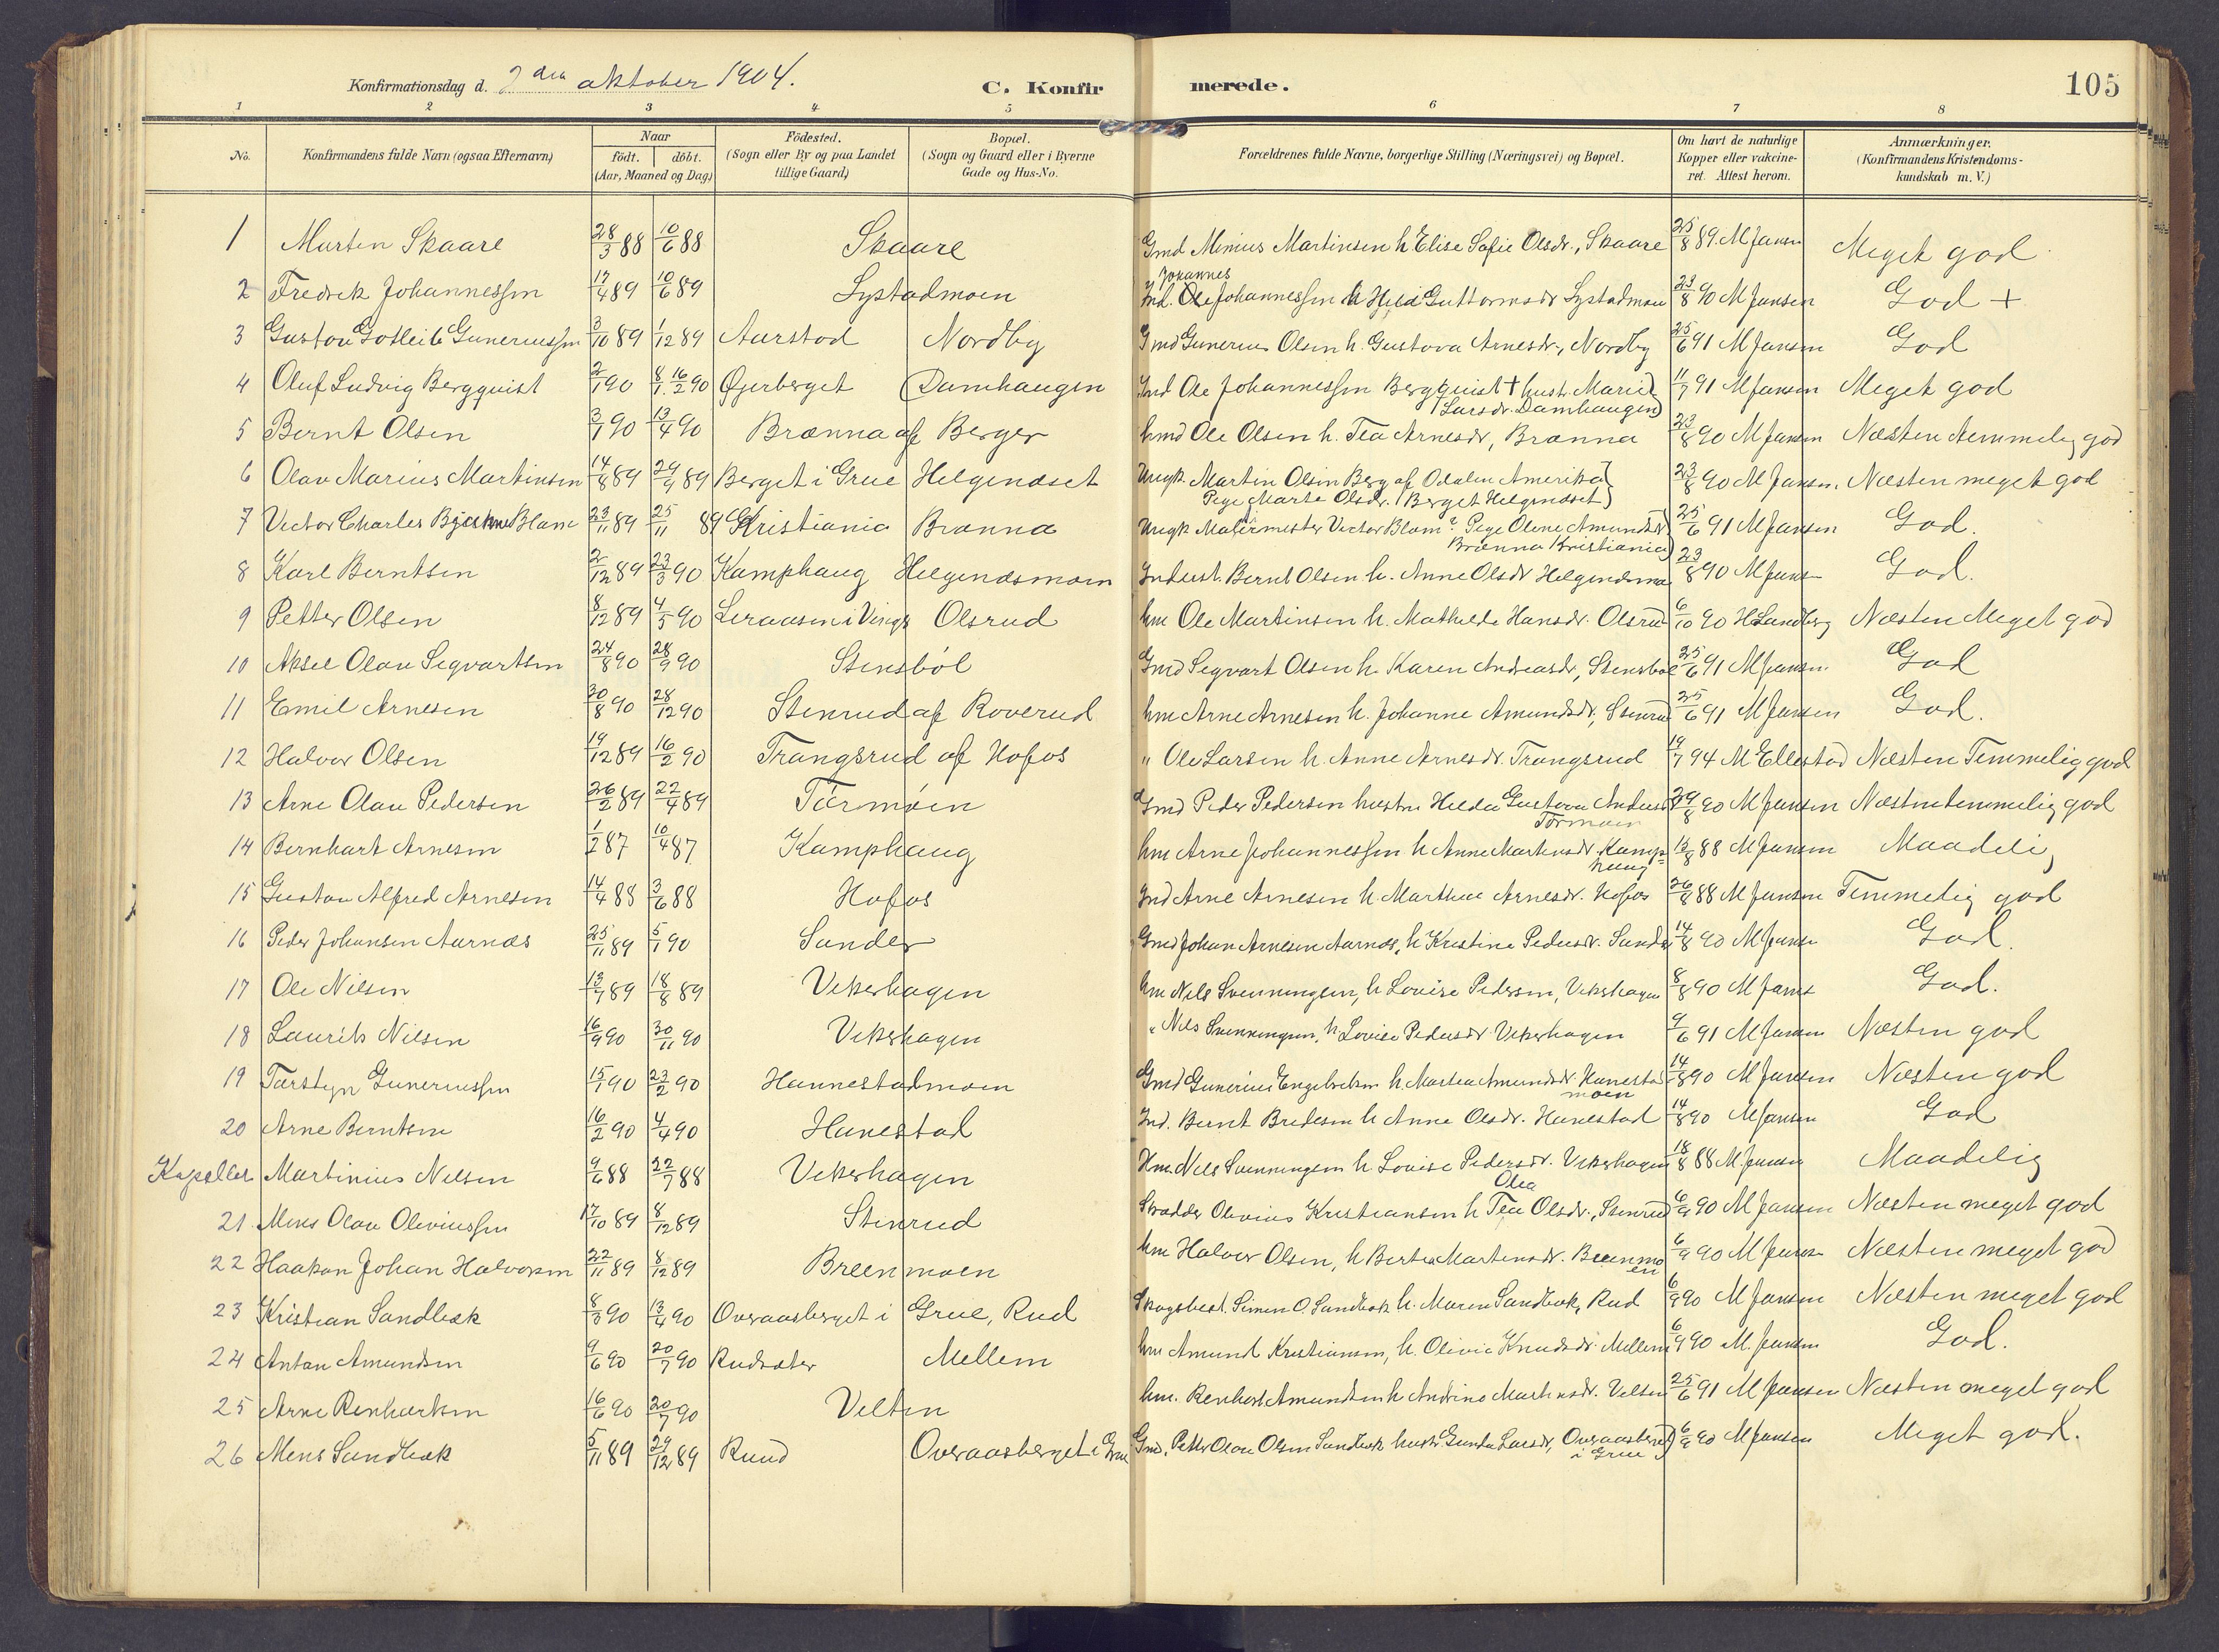 Konfirmationsdag d. 2den oktober 1904. C. Konfirmerede. 105
1 2 3 4 5 6 7 8
No. Konfirmandens fulde Navn (ogsaa Efternavn) Naar födt. döbt. (Aar, Maaned og Dag) Födested. (Sogn eller By og paa Landet tillige Gaard) Bopæl. (Sogn og Gaard eller i Byerne Gade og Hus-No. Forældrenes fulde Navne, borgerlige Stilling (Næringsvei) og Bopæl. Om havt de naturlige Kopper eller vakcineret. Attest herom. Anmærkninger. (Konfirmandens Kristendomskundskab m. V.)
1 Martin Skaare 28/3 88 10/6 88 Skaare Gmd Minius Martinsen h Elise Sofie Olsdr., Skaare 25/8 89. M Jansen Meget god
2 Fredrik Johannessen 17/4 89 10/6 89 Lystadmoen Ind. Johannes Johannessen h Guttormsdr Lystadmoen 23/8 90 M Jansen God +
3 Gustav Gotleib Guneriussen 3/10 89 1/12 89 Aarstad Nordby Gmd Gunerius Olsen h. Gustava Arnesdr., Nordby 25/6 91 M Jansen God
4 Oluf Ludvig Bergquist 2/1 90 16/2 90 Øierberget Damhaugen Ind Ole Johannessen Bergquist + hustr. Marie Larsdr. Damhaugen 11/7 91 M Jansen Meget god
5 Bernt Olsen 3/1 90 13/4 90 Brænna af Berger hmd Ole Olsen h. Tea Arnesdr, Brænna 23/8 90 M Jansen Næsten temmelig god
6 Olav Marius Martinsen 14/8 89 29/9 89 Berget i Grue Helgenæset Ungk. Martin Olsen Berg af Odalen Amerika Pege Marte Olsdr. Berget Helgenæset 23/8 90 M Jansen. Næsten meget god
7 Victor Charles Bjarne Blom 23/11 89 25/11 89 Kristiania Brænna Ungk. Malermester Victor Blom & Pige Oline Amundsdr Brænna Kristiania 25/6 91 M Jansen God.
8 Karl Berntsen 2/12 89 23/3 90 Kamphaug Helgenæsmoen Inderst. Bernt Olsen h. Anne Olsdr Helgenæsmo 23/8 90 M Jansen God.
9 Petter Olsen 8/12 89 4/5 90 Leraasen i Vinger Olsrud hm Ole Martinsen h. Mathilde Hansdr. Olsrud 6/10 90 H Sandberg Næsten Meget god
10 Aksel Olav Segvartsen 24/8 90 28/9 90 Stensból Gmd Segvart Olsen h. Karen Andreasdr, Stensból 25/6 91 M Jansen. God
11 Emil Arnesen 30/8 90 28/12 90 Stenrud af Roverud hm Arne Arnesen h. Johanne Amundsdr, Stenrud 25/6 91 M Jansen God.
12 Halvor Olsen 19/12 89 16/2 90 Trangsrud af Hofos " Ole Larsen h. Anne Arnesdr. Trangsrud 19/7 94 M Ellestad Næsten Temmelig god
13 Arne Olau Pedersen 26/2 89 22/4 89 Tórmóen Gmd Peder Pedersen hustru Hilda Gustava Andersdr Tormoen 29/8 90 M Jansen Næsten temmelig god
14 Bernhart Arnesen 1/2 87 10/4 87 Kamphaug hm Arne Johannessen h Anne Martinsdr. Kamphaug 13/8 88 M Jansen Maadelig
15 Gustav Alfred Arnesen 14/4 88 3/6 88 Hofos Ind Arne Arnesen h. Marthea Arnesdr. Hofos 26/8 88 M Jansen Temmelig god
16 Peder Johansen Aarnæs 25/11 89 5/1 90 Sander Gmd Johan Arnesen Aarnæs, h Kristine Pedersdr. Sander 14/8 90 M Jansen God.
17 Ole Nilsen 13/7 89 18/8 89 Vekerhagen hm Nils Svenningsen, h Lovise Pedersen, Vekerhagen 8/8 90 M Jansen God.
18 Laurits Nilsen 16/9 90 30/11 90 Vekerhagen " Nils Svenningsen, h Lovise Pedersdr Vekerhagen 9/6 91 M Jansen Næsten god
19 Torstyn Guneriussen 15/1 90 23/2 90 Hannestadmoen Gmd Gunerius Engebretsen h. Martea Amundsdr Hanestadmoen 14/8 90 M Jansen Næsten god
20 Arne Berntsen 16/2 90 4/4 90 Hanestad Ind. Bernt Bredesen h Anne Olsdr. Hanestad 14/8 90 M Jansen God
Kapellet Martinius Nilsen 9/6 88 22/7 88 Vekerhagen Hm. Nils Svenningsen h Lovise Pedersdr. Vekerhagen 18/8 88 M Jansen Maadelig
21. Mens Olav Oliviussen 17/10 89 8/12 89 Stenrud Skrædder Olivius Kristiansen h Tea Olea Olsdr., Stenrud 6/9 90 M Jansen Næsten meget god
22 Haakon Johan Halvorsen 22/11 89 8/12 89 Breenmoen hm Halvor Olsen, h Berte Martensdr. Breenmoen 6/9 90 M Jansen Næsten meget god
23 Kristian Sandbæk 8/3 90 13/4 90 Overaasberget i Grue, Rud Skogsbest. Simen O. Sandbæk h. Maren Sandbæk, Rud 6/9 90 M Jansen Næsten meget god
24 Anton Amundsen 9/6 90 20/7 90 Rudsæter Mellem hm Amund Kristiansen, h. Olivie Knudsdr. Mellem 6/9 90 M. Jansen God.
25 Arne Renhartsen 16/6 90 20/7 90 Velten hm. Renhart Amundsen h Andrine Martinsdr. Velten 25/6 91 M Jansen Næsten meget god
26 Mens Sandbæk 5/11 89 29/12 89 Ruud Overaasberget i Grue Gmd. Petter Olav Olsen Sandbæk hustr. Gunda Larsdr, Overaasberget i Grue 6/9 90 M Jansen Meget god.